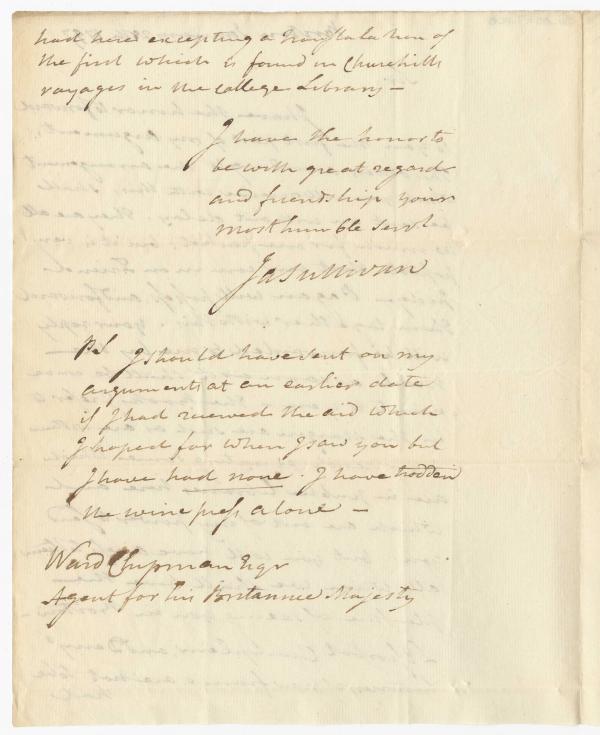 had here excepting a translation of
the first which is found in Churchills
voyages in the College Library —
I have the honor to
be with great regard
and friendship your
most humble servt
Ja Sullivan
PS I should have sent on my
arguments at an earlier date
if I had received the aid which
I hoped for when I saw you but
I have had none. I have trodden
the wine press alone —
Ward Chipman Esqr
Agent for his Britannic Majesty